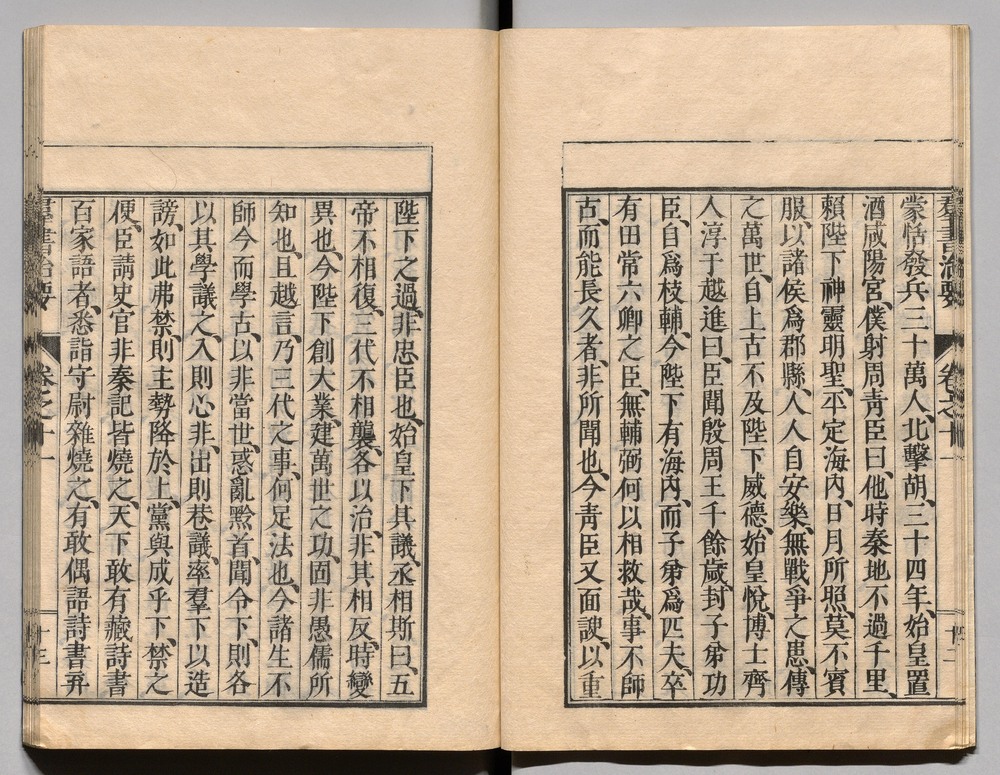 羣書治要 卷之十一 十二
蒙恬發兵三十萬人、北擊胡、三十四年、始皇置
酒咸陽宮、僕射周青臣曰、他時秦地不過千里、
賴陛下神靈明聖、平定海內、日月所照、莫不賓
服、以諸侯爲郡縣、人人自安樂、無戰爭之患、傳
之萬世、自上古不及陛下威德、始皇悅、博士齊
人淳于越進曰、臣聞殷周王千餘歲、封子弟功
臣、自爲枝輔、今陛下有海內、而子弟爲匹夫、卒
有田常六卿之臣、無輔弼何以相救哉、事不師
古、而能長久者、非所聞也、今青臣又面諛、以重
陛下之過、非忠臣也、始皇下其議、丞相斯曰、五
帝不相復、三代不相襲、各以治、非其相反、時變
異也、今陛下創大業、建萬世之功、固非愚儒所
知也、且越言、乃三代之事、何足法也、今諸生不
師今而學古、以非當世、惑亂黔首、聞令下、則各
以其學議之、入則心非、出則巷議、率羣下以造
謗、如此弗禁、則主勢降於上、黨與成乎下、禁之
便、臣請史官非秦記皆燒之、天下敢有藏詩書
百家語者、悉詣守尉雜燒之、有敢偶語詩書弃
羣書治要 卷之十一 十三